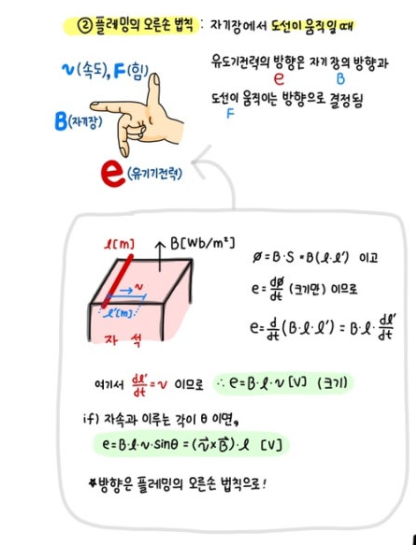 ② 플레밍의 오른손 법칙 : 자기장에서 도선이 움직일 때
v(속도), F(힘)
B(자기장)
e(유기기전력)
유도기전력의 방향은 자기장의 방향과
e B
도선이 움직이는 방향으로 결정됨
F
l[m]
B[Wb/m²]
→v
l'[m]
자 석
ø=B·S=B(l·l') 이고
e=dø/dt (크기만) 이므로
e=d/dt(B·l·l')=B·l·dl'/dt
여기서 dl'/dt=v 이므로 ∴e=B·l·v [V] (크기)
if) 자속과 이루는 각이 θ 이면,
e=B·l·v·sinθ=(v⃗×B⃗)·l [V]
*방향은 플레밍의 오른손 법칙으로!